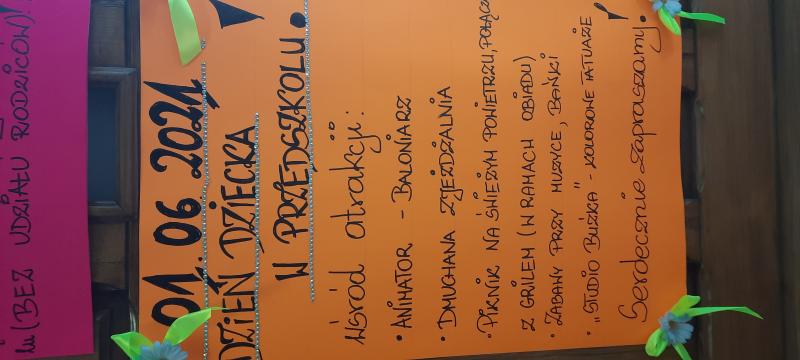 lu (BEZ UDZIAŁU RODZICÓW)
01.06.2021
DZIEŃ DZIECKA
W PRZEDSZKOLU.
Wśród atrakcji:
• ANIMATOR - BALONIARZ
• DMUCHANA ZJEŻDŻALNIA
• PIKNIK NA ŚWIEŻYM POWIETRZU, POŁĄCZ
Z GRILEM (W RAMACH OBIADU)
• ZABAWY PRZY MUZYCE, BAŃKI
• "STUDIO BUŹKA" - KOLOROWE TATUAŻE
Serdecznie zapraszamy.